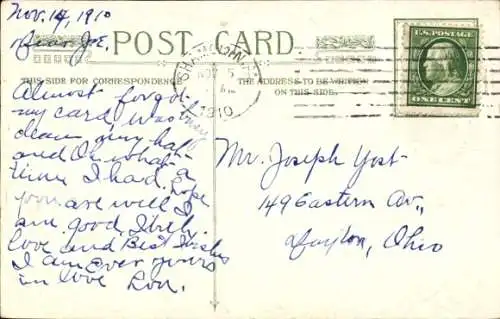 Nov. 14, 1910
Dear Joe.
POST CARD
U.S. POSTAGE
ONE CENT
THIS SIDE FOR CORRESPONDENCE
THE ADDRESS TO BE WRITTEN
ON THIS SIDE.
NOV 15
1910
Almost forgot
my card was busy
clean my hat
and Oh what a
time I had. hope
you are well I
am good, With
love and Best Wishes
I am Ever yours
in love
Mr. Joseph Yost
149 Eastern Av.,
Dayton, Ohio